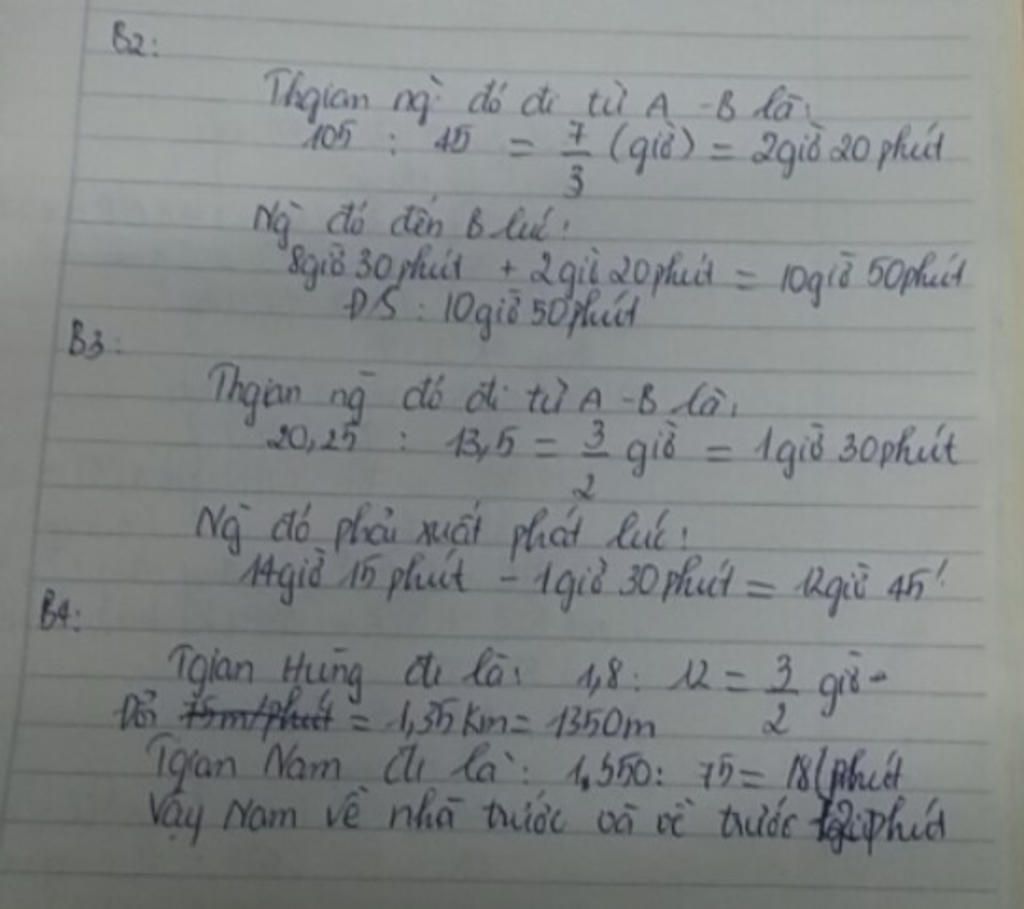 B2:
Thgian ng` đó đi từ A - B là:
105 : 45 = 7/3 (giờ) = 2giờ 20 phút
Ng` đó đến B lúc:
8giờ 30phút + 2giờ 20phút = 10giờ 50phút
ĐS : 10giờ 50phút
B3:
Thgian ng` đó đi từ A - B là:
20,25 : 13,5 = 3/2 giờ = 1giờ 30phút
Ng` đó phải xuất phát lúc:
14giờ 15 phút - 1giờ 30phút = 12giờ 45'
B4:
Tgian Hùng đi là: 1,8 : 12 = 3/2 giờ
Đổi 75m/phút = 1,35 km = 1350m
Tgian Nam đi là: 1,350 : 75 = 18(phút
Vậy Nam về nhà trước và về trước phút